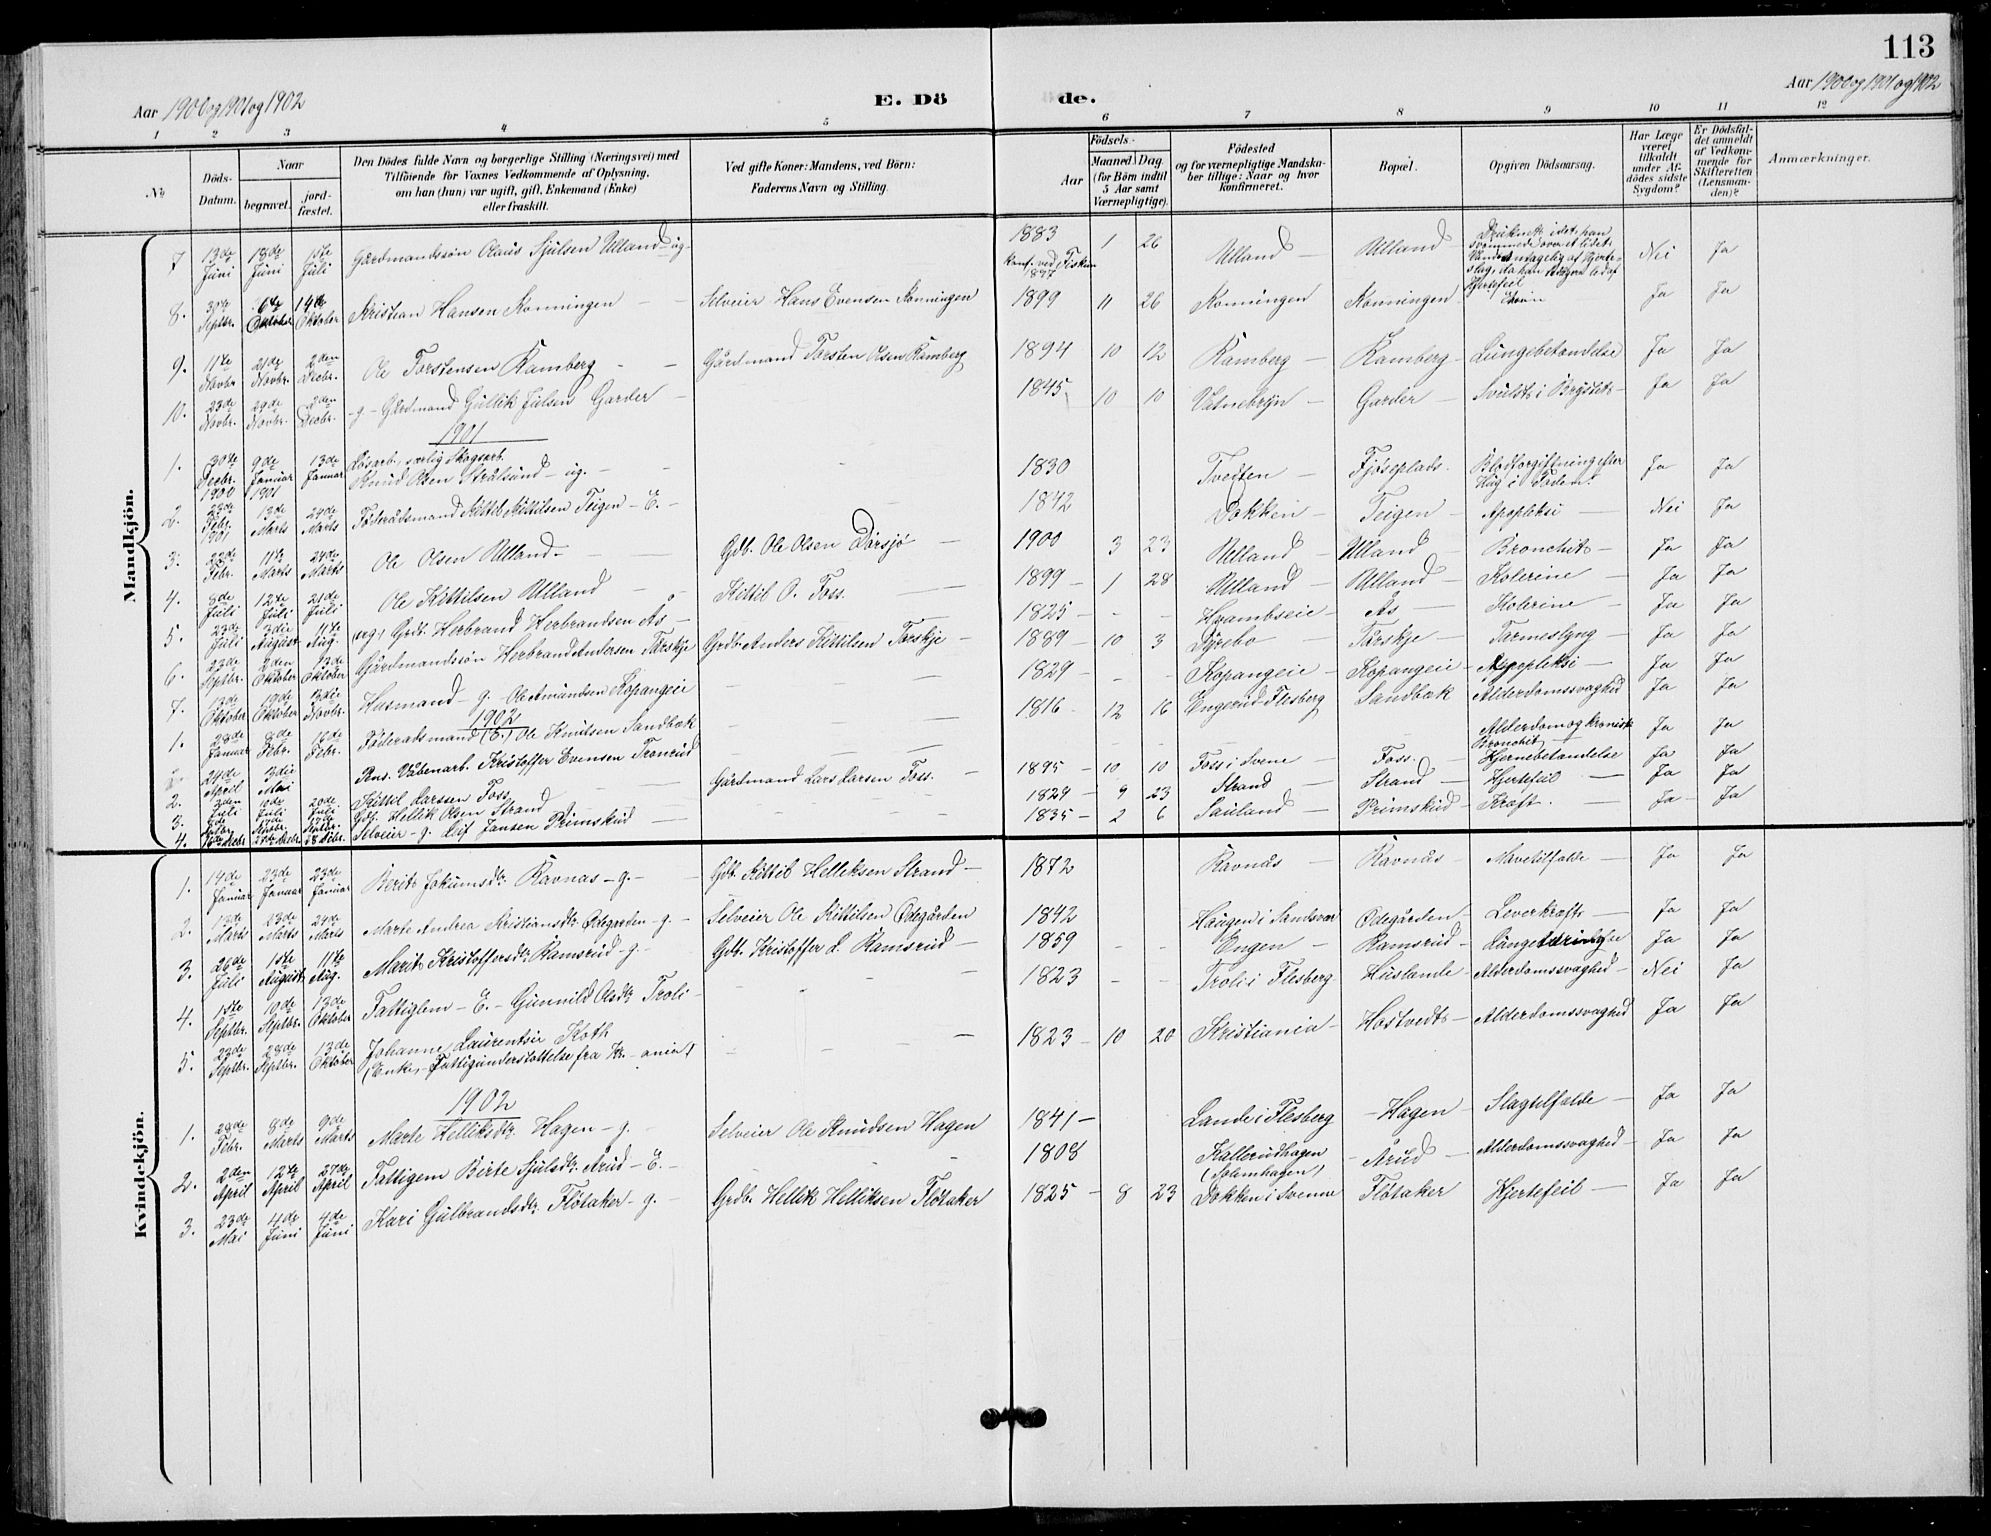 113
Aar 1900 og 1901 og 1902
E. Dö de.
Aar 1900 og 1901 og 1902
1 2 3 4 5 6 7 8 9 10 11 12
No
Döds-Datum.
Naar
begravet.
jord-fæstet.
Den Dödes fulde Navn og borgerlige Stilling (Næringsvei) med
Tilföiende for Voxnes Vedkommende af Oplysning,
om han (hun) var ugift, gift, Enkemand (Enke)
eller fraskilt.
Ved gifte Koner: Mandens, ved Börn:
Faderens Navn og Stilling.
Födsels-
Aar
Maaned Dag
(for Börn indtil
5 Aar samt
Værnepligtige).
Födested
og for værnepligtige Mandska-
ber tillige: Naar og hvor
konfirmeret.
Bopæl.
Opgiven Dödsaarsag.
Har Læge
været
tilkaldt
under Af-
dödes sidste
Sygdom?
Er Dödsfal-
det anmeldt
af Vedkom-
mende for
Skifteretten
(Lensman-
den)?
Anmærkninger.
Mandkjön.
7 13de Juni 18de Juni 1ste Juli Gårdmandssøn Olaus Sjulsen Ulland - ug. 1883 1 26 Ulland Ulland Druknet idet han svømmede over et lidet Vand Nei Ja
8. 30te Septbr. 6te Oktober 14de Oktober Kristian Hansen Konningen - Selveier Hans Evensen Konningen 1899 11 26 Konningen Konningen Ja Ja
9. 11te Novbr. 21de Novbr. 2den Decbr. Ole Torstensen Kamberg - Gårdmand Torsten Olsen Kamberg 1894 10 12 Kamberg - Kamberg - Lungebetændelse Ja Ja
10. 23de Novbr. 29de Novbr. 2den Decbr. - g - Gårdmand Gullik Julsen Garder - 1845 10 10 Vatnebryn - Garder - Svulst i Brystet - Ja Ja
1901
1. 30te Decbr. 1900 9de Januar 1901 13de Januar Løsarb., særlig Skogsarb. Knud Olsen Strålsund - ug. - 1830 Tvedten - Fjøseplads. Blodforgiftning efter Hug i Foden. Ja Ja
2. 23de Febr. 1901 13de Marts 24de Marts Føderådsmand Kittil Kittilsen Teigen - E. - 1842 Dokken - Teigen - Apopleksi - Nei Ja
3. 22de Febr. 11te Marts 24de Marts Ole Olsen Ulland - Gdb. Ole Olsen Dørsjø - 1900 3 23 Ulland - Ulland - Bronchit - Ja Ja
4. 8de Juli 12te Juli 21de Juli Ole Kittilsen Ulland - Kittil O. Foss. 1899 - 1 28 Ulland - Ulland - Kolerine - Ja Ja
5. 23de Juli 3die August 11te Aug. Grdb. Herbrand Herbrandsen Ås - 1825 - - - Haambseie - Ås - Kolerine - Ja Ja
6. 23de Septbr. 2den Oktober 13de Oktober Gårdmandssøn Herbrand Andersen Tårskje Grdb. Anders Kittilsen Tårskje - 1889 - 10 3 Dyrebo - Tårskje - Tarmeslyng - Ja Ja
7. 13de Oktober 19de Oktober 13de Novbr. Husmand - g. - Ole Amundsen Kopangeie 1829 - - - Kopangeie - Kopangeie - Apopleksi - Ja Ja
1902
1. 28de Januar 8de Febr. 16de Febr. Føderadsmand (E.) Ole Knutsen Sandbæk 1816 12 16 Engerud Flesberg Sandbæk Alderdomssvaghed Ja Ja
24de April 3die Mai Pens. Våbenarb. Kristoffer Evensen Tronrud Alderdom og kronisk Bronchit Ja Ja
2. 3den Juli 10de Juli 20de Juli Kittil Larssen Foss Gårdmand Lars Larsen Foss. - 1895 - 10 10 Foss i Svene - Foss. - Hjernebetændelse Ja Ja
3. Gdb. Hellik Olsen Strand 1829 - 9 23 Strand Strand Hjertefeil - Ja Ja
4. Selveier - g. Leif Jansen Primskud - 1835 - 2 6 Sauland - Primskud - Kræft. - Ja - Ja
Kvindekjön.
1. 14de Januar 23de Januar 23de Januar Berit Jokumsdtr. Ravnas - g. - Gdb. Kittil Helleksen Strand - 1872 Ravnås - Ravnås - Mavetilfælde - Ja Ja
2. 13de Marts 23de Marts 24de Marts Marte Andrea Kristiansdtr. Ødegården - g. - Selveier Ole Kittilsen Ødegården 1842 Haugen i Sandsvær Ødegården - Leverkræft - Ja Ja
3. 26de Juli 1ste August 11te Aug. Marit Kristoffersdtr. Ramsrud - g. - Gdb. Kristoffer L. Ramsrud - 1859 - - Engen - Ramsrud - Lungetæring Ja Ja
4. 1ste Septbr. 10de Septbr. 13de Oktober Fattiglem - E. - Gunnild Olsdtr. Troli - 1823 - - Troli i Flesberg Huslande - Alderdomssvaghed - Nei Ja
5. 23de Septbr. 28de Septbr. 13de Oktober Johanne Laurentsie Koth (Enke, Fattigunderstøttelse fra Kr. - ania) 1823 - 10 20 Kristiania - Hostvedt - Alderdomssvaghed Ja Ja
1902
1. 28de Febr. 8de Marts 9de Marts Marte Helliksdtr. Hagen - g. Selveier Ole Knudsen Hagen 1841 - Lande i Flesberg - Hagen - Slagtilfælde - Ja Ja
2. 2den April 12te April 27de April Fattigem Birte Sjulsdtr. Årud - E. - 1808 Kallerudhagen (Solemhagen) - Årud - Alderdomssvaghed - Ja Ja
3. 23de Mai 4de Juni 4de Juni Kari Gulbrandsdtr. Fløtaker - g. - Grdb. Hellik Helliksen Fløtaker 1825 - 8 23 Dokken i Svenne Fløtaker Hjertefeil - Ja Ja